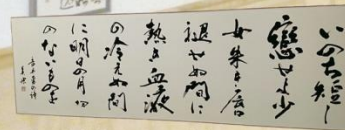 いのち短し
戀せよ少
女朱き唇
褪せぬ間に
熱き血液
の冷えぬ間
に明日の月日
のないものを
吉井勇の詩